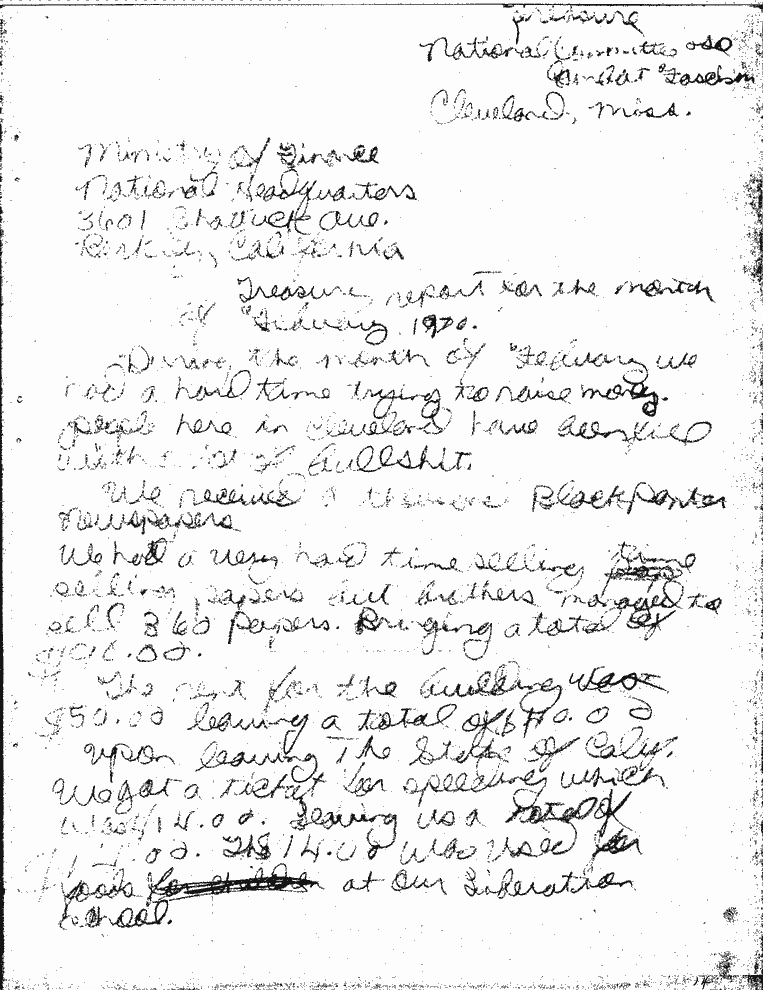 Treasure
National Committee
Combat Fascism
Cleveland, Miss.
Ministry of Finance
National Headquarters
3601 Shattuck Ave.
Berkeley, California
Treasure, report for the month
of February 1970.
During the month of February we
had a hard time trying to raise money.
people here in Cleveland have been
with bullshit.
We received a thousand Black Panter
newspapers
We had a very hard time selling
selling papers but brothers managed to
sell 360 Papers. Bringing a total of
The rent for the building was
$50.00 leaving a total of
Upon leaving The State of Calif.
We got a ticket for speeding which
was $14.00. Leaving us a total of
The 14.00 was used for
foods for children at Our Liberation
School.